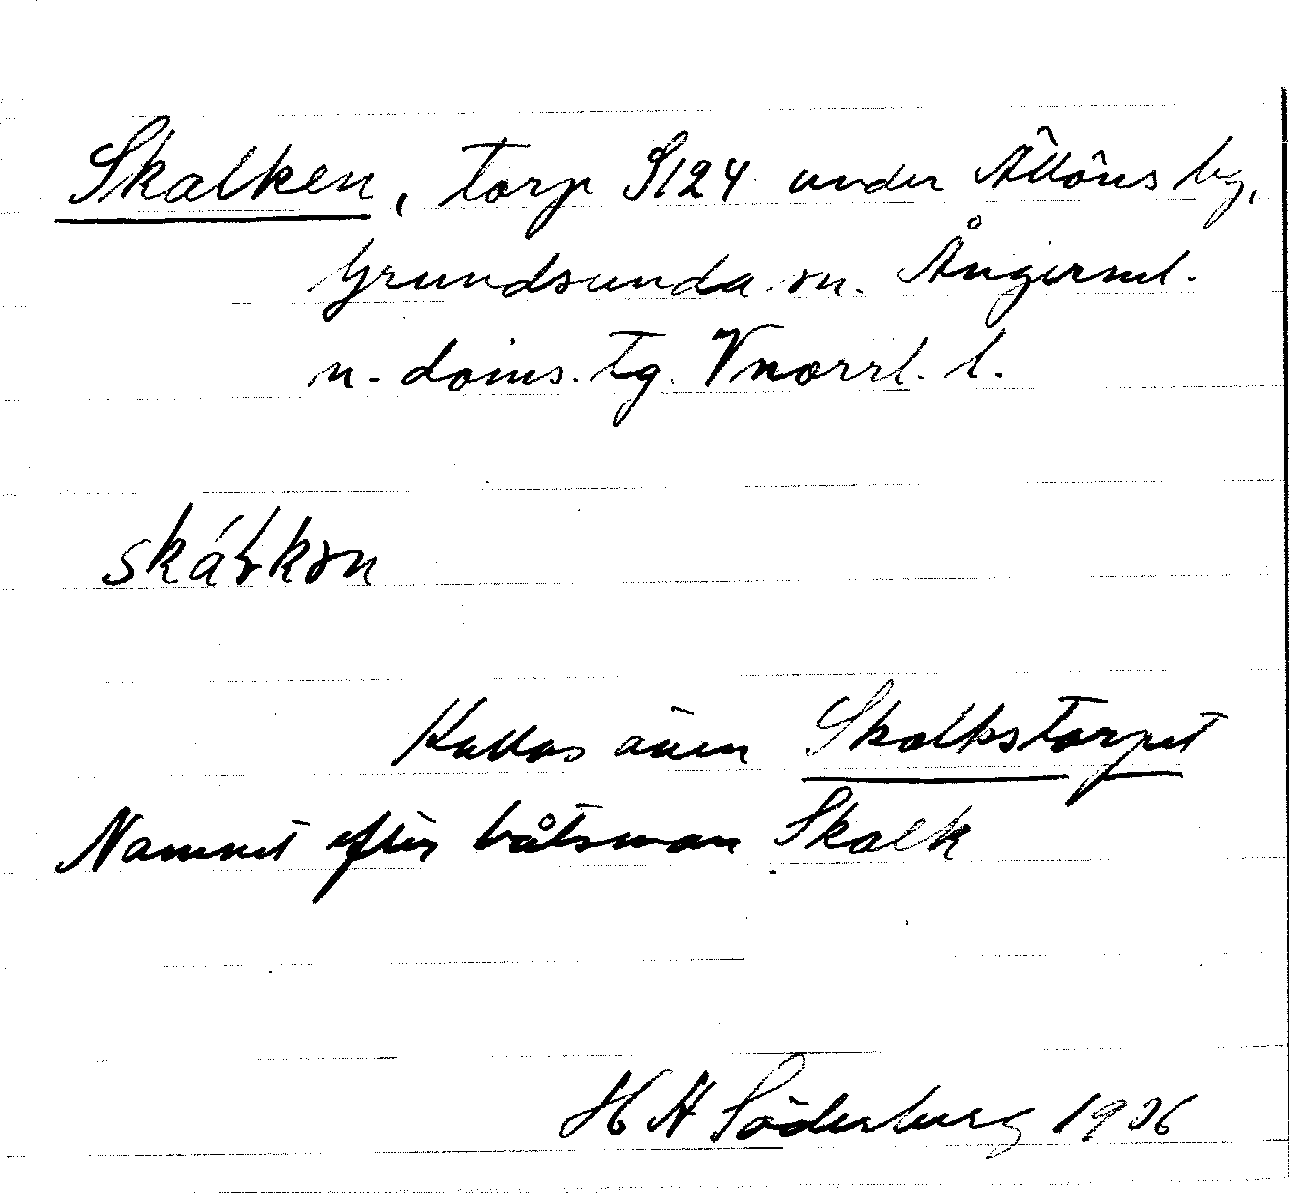 Skalken, torp S124 under Ällöns by,
Grundsunda sn. Ångerml.
n. doms. tg. Vnorrl. l.
Kallas även Skalkstorpet
Namnet efter båtsman Skalk
H H Söderberg 1936